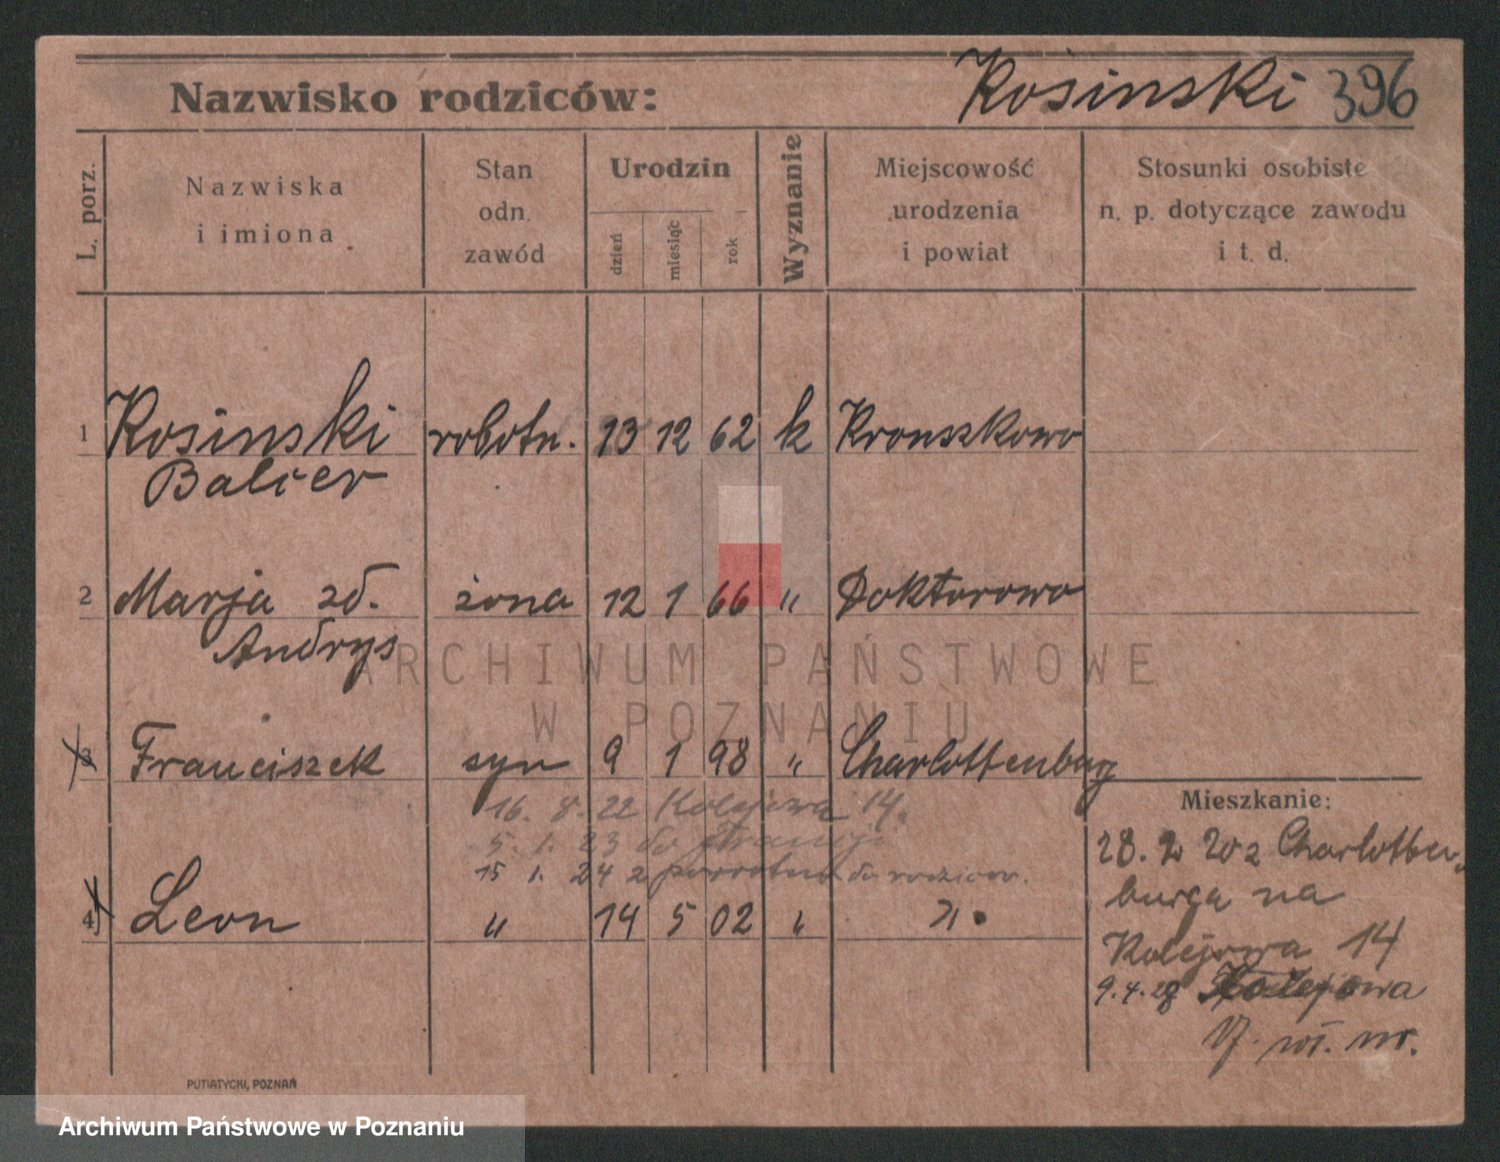 Nazwisko rodziców: Rosinski 396
L. porz.
Nazwiska
i imiona
Stan
odn.
zawód
Urodzin
dzień
miesiąc
rok
Wyznanie
Miejscowość
urodzenia
i powiat
Stosunki osobiste
n. p. dotyczące zawodu
i t. d.
1 Rosinski robotn. 13 12 62 k Kronszkowo
Balcer
2 Marja zd. żona 12 1 66 " Doktorowo
Andrys
3 Franciszek syn 9 1 98 " Charlottenburg
16. 8. 22 Kolejowa 14.
5. 1. 23 do
15 1. 24 z powrotem do rodziców.
4 Leon " 14 5 02 " "
Mieszkanie:
28. 2 20 z Charlotten-
burga na
Kolejowa 14
9. 4. 28 Kolejowa
PUTIATYCKI, POZNAŃ
ARCHIWUM PAŃSTWOWE
W POZNANIU
Archiwum Państwowe w Poznaniu